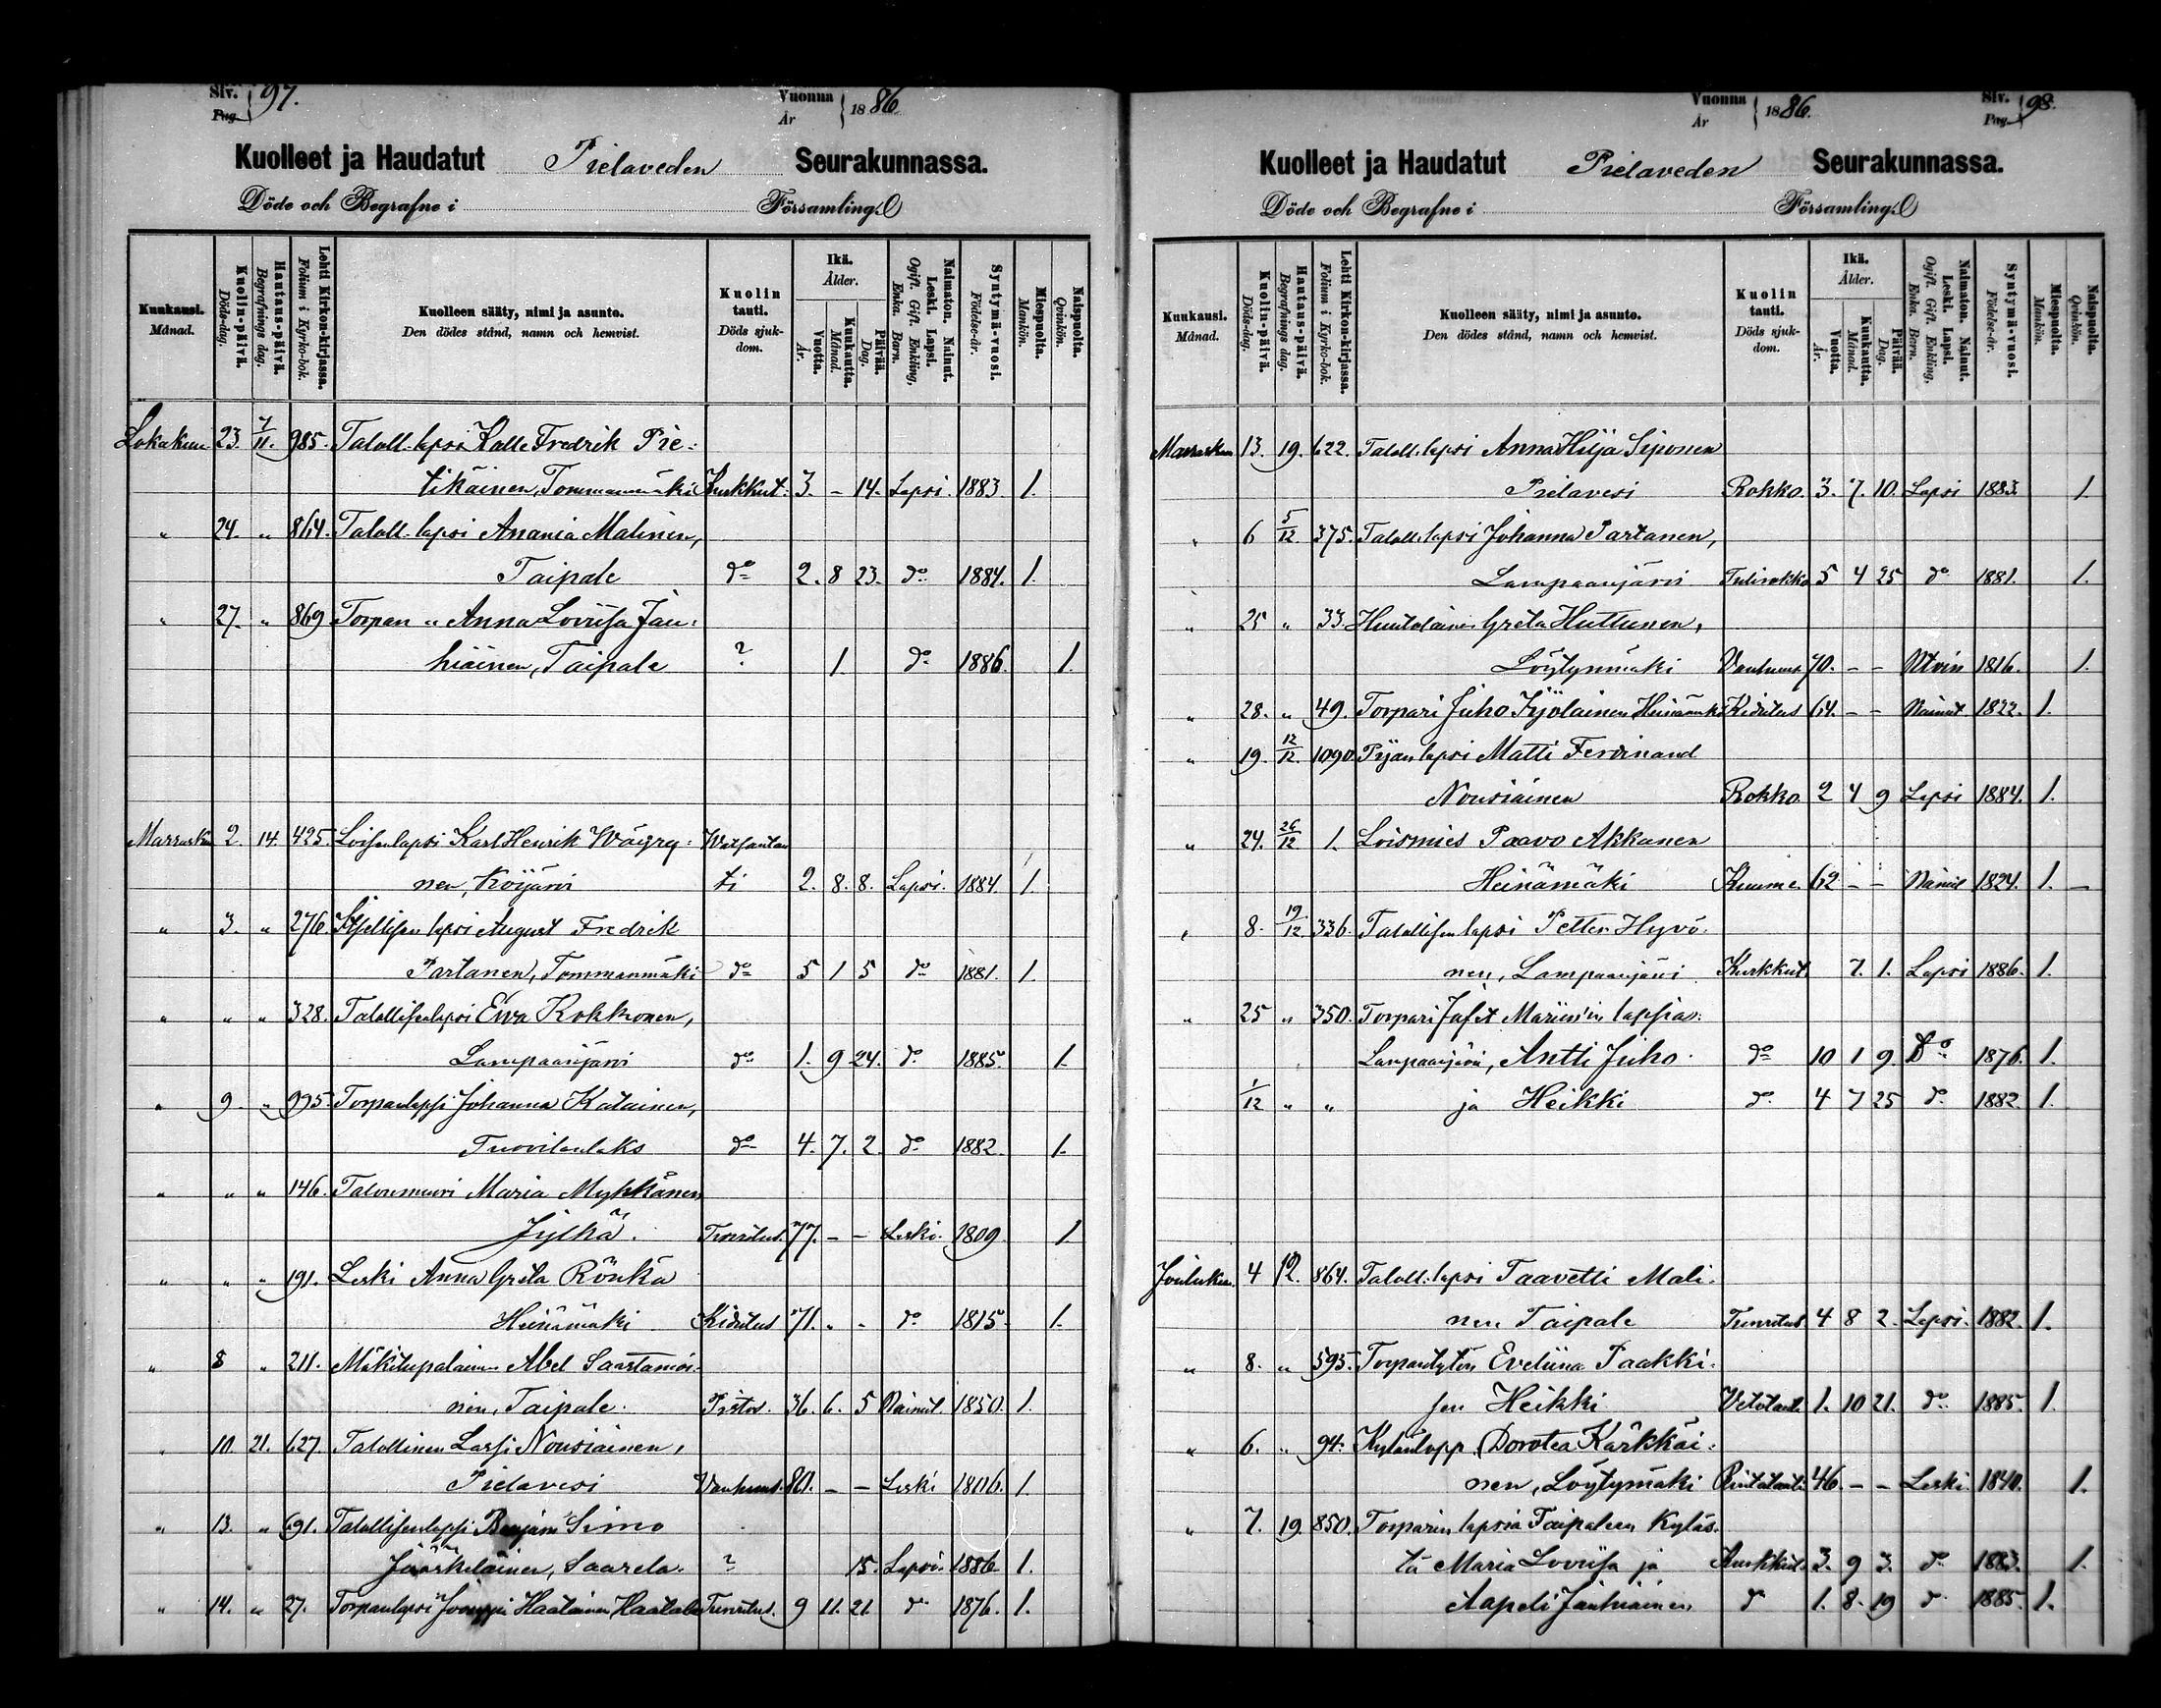 Siv. Pag. 97.
Vuonna År 1886
Kuolleet ja Haudatut Pielaveden Seurakunnassa.
Döde och Begrafne i Församling.
Kuukausi. Månad.
Kuolin-päivä. Döds-dag.
Hautaus-päivä. Begrafnings dag.
Lehti Kirkon-kirjassa. Folium i Kyrko-bok.
Kuolleen sääty, nimi ja asunto. Den dödes stånd, namn och hemvist.
Kuolin tauti. Döds sjukdom.
Ikä. Ålder.
Vuotta. År.
Kuukautta. Månad.
Päivää. Dag.
Naimaton. Nainut. Leski. Lapsi. Ogift. Gift. Enkling, Enka. Barn.
Syntymä-vuosi. Födelse-år.
Miespuolta. Mankön.
Naispuolta. Qvinkön.
Lokakuu 23. 7/11. 985. Taloll. lapsi Kalle Fredrik Pie-
tikäinen, Tommanmäki Kurkkut. 3. - 14. Lapsi. 1883 1.
" 24. " 864. Taloll. lapsi Anania Malinen,
Taipale do 2. 8 23. do 1884. 1.
" 27. " 869 Torpan " Anna Loviisa Jau-
hiäinen, Taipale ? 1. do 1886. 1.
Marraskuu 2. 14. 425. Loisenlapsi Karl Henrik Wäyry-
nen, Koijärvi ti 2. 8. 8. Lapsi. 1884. 1.
" 3. " 276. lapsi August Fredrik
Partanen, Tommanmäki do 5 1 5 do 1881. 1.
" " " 328. Talollisenlapsi Ewa Kokkonen,
Lampaanjärvi do 1. 9 24. do 1885. 1.
" 9. " 995. Torpanlapsi Johanna Katainen,
Tuovilanlaks do 4. 7. 2. do 1882. 1.
" " " 146. Talonmuori Maria Mykkänen,
Jylhä. Tuvritus. 77. - - Leski. 1809. 1.
" " " 191. Leski Anna Greta Rönkä
Heinämäki Kidutus 71. " - do 1815. 1.
" 8 " 211. Mäkitupalainen Abel Saastamoi-
nen, Taipale. Pistos. 36. 6. 5 Nainut. 1850. 1.
" 10. 21. 627. Talollinen Lassi Nousiainen,
Pielavesi Vanhuus. 80. - - Leski 1806. 1.
" 13. " 691. Talollisenlapsi Benjam Simo
Jääskeläinen, Saarela. ? 15. Lapsi. 1886. 1.
" 14. " 27. Torpanlapsi Haatainen Haatala Tuvritus. 9 11. 21. do 1876. 1.
Vuonna År 1886.
Siv. Pag. 98.
Kuolleet ja Haudatut Pielaveden Seurakunnassa.
Döde och Begrafne i Församling.
Kuukausi. Månad.
Kuolin-päivä. Döds-dag.
Hautaus-päivä. Begrafnings dag.
Lehti Kirkon-kirjassa. Folium i Kyrko-bok.
Kuolleen sääty, nimi ja asunto. Den dödes stånd, namn och hemvist.
Kuolin tauti. Döds sjukdom.
Ikä. Ålder.
Vuotta. År.
Kuukautta. Månad.
Päivää. Dag.
Naimaton. Nainut. Leski. Lapsi. Ogift. Gift. Enkling, Enka. Barn.
Syntymä-vuosi. Födelse-år.
Miespuolta. Mankön.
Naispuolta. Qvinkön.
Marraskuu 13. 19. 622. Taloll. lapsi Anna Hilja Siponen
Pielavesi Rokko. 3. 7. 10. Lapsi 1883. 1.
" 6 5/12 375. Taloll. lapsi Johanna Partanen,
Lampaanjärvi Tulirokko 5 4 25 do 1881. 1.
" 25 " 33. Huutolainen Greta Huttunen,
Löytynmäki Vanhuus. 70. - - 1816. 1.
" 28. " 49. Torpari Juho Tyôläinen Heinämäki Kidutus 64. - - Nainut 1822. 1.
" 19. 12/12. 1090. Pijan lapsi Matti Ferdinand
Nousiainen Rokko. 2 4 9 Lapsi 1884. 1.
" 24. 26/12 1. Loismies Paavo Akkanen
Heinämäki Kuume. 62 - - Nainut 1824. 1. -
" 8. 19/12. 336. Talollisen lapsi Petter Hyvö-
nen, Lampaanjärvi Kurkkut. 7. 1. Lapsi 1886. 1.
" 25 " 350. Torpari Jafet lapsia:
Lampaanjärvi, Antti Juho do 10 1 9. Do 1876. 1.
1/12 " " ja Heikki do 4 7 25 do 1882. 1.
Jouluku. 4 12. 864. Taloll. lapsi Taavetti Mali-
nen Taipale Tuvritus 4 8 2. Lapsi. 1882. 1.
" 8. " 595. Torpantytön Eveliina Paakki-
sen Heikki Vetotaut. 1. 10 21. do 1885. 1.
" 6. " 94. Kylänlapp. Dorotea Kärkkäi-
nen, Löytymäki Rintataut. 46. - - Leski. 1840. 1.
" 7. 19. 850. Torparin lapsia Taipaleen kyläs-
tä Maria Loviisa ja Kurkkut. 3. 9 3. do 1883. 1.
Aapeli Jauhiainen, do 1. 8. 19 do 1885. 1.